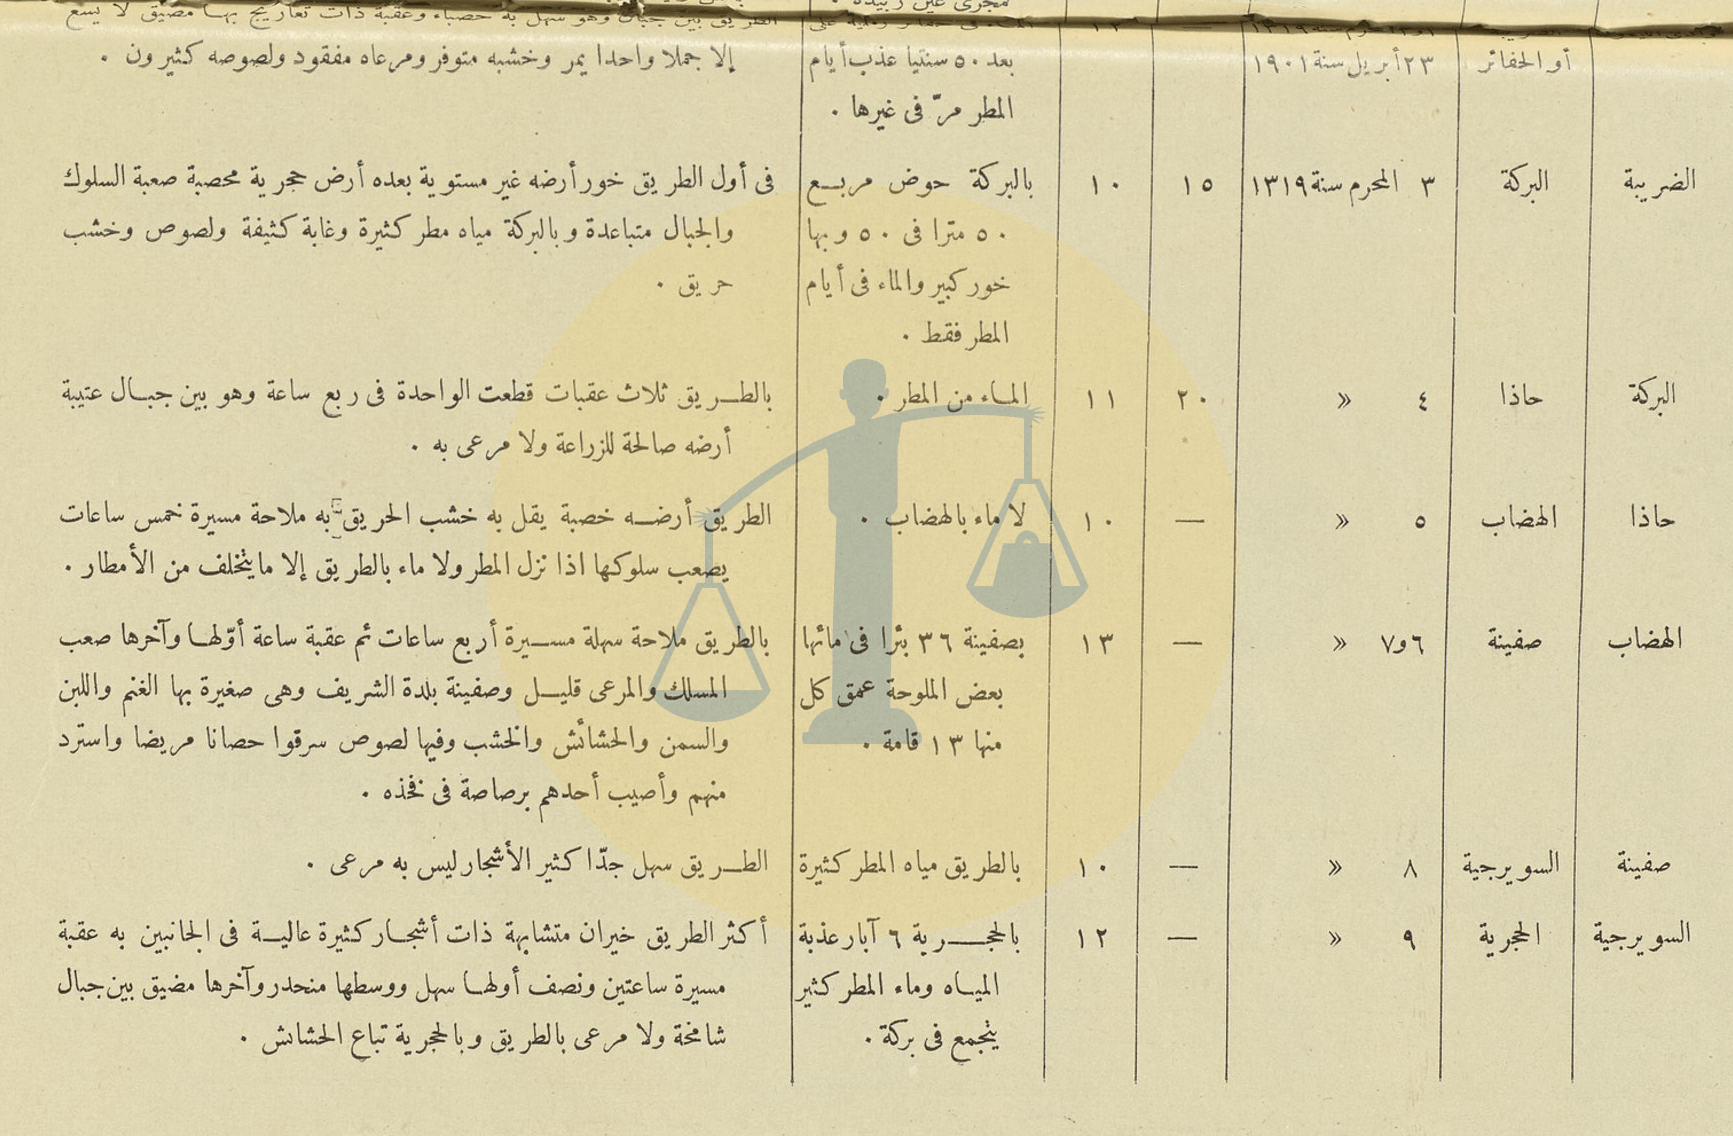 مجرى عين زبيدة .
الطريق بين جبال وهو سهل به حصباء وعقبة ذات تعاريج بها مضيق لا يسع
أو الحفائر ٢٣ أبريل سنة ١٩٠١ بعد ٥٠ سنتيا عذب أيام إلا جملا واحدا يمر وخشبه متوفر ومرعاه مفقود ولصوصه كثيرون .
المطر مرّ فى غيرها .
الضريبة البركة ٣ المحرم سنة ١٣١٩ ١٥ ١٠ بالبركة حوض مربع فى أول الطريق خور أرضه غير مستوية بعده أرض حجرية محصبة صعبة السلوك
٥٠ مترا فى ٥٠ وبها والجبال متباعدة وبالبركة مياه مطر كثيرة وغابة كثيفة ولصوص وخشب
خور كبير والماء فى أيام حريق .
المطر فقط .
البركة حاذا ٤ » ٢٠ ١١ الماء من المطر . بالطريق ثلاث عقبات قطعت الواحدة فى ربع ساعة وهو بين جبال عتيبة
أرضه صالحة للزراعة ولا مرعى به .
حاذا الهضاب ٥ » — ١٠ لا ماء بالهضاب . الطريق أرضه خصبة يقل به خشب الحريق به ملاحة مسيرة خمس ساعات
يصعب سلوكها اذا نزل المطر ولا ماء بالطريق إلا ما يتخلف من الأمطار .
الهضاب صفينة ٦ و٧ » — ١٣ بصفينة ٣٦ بئرا فى مائها بالطريق ملاحة سهلة مسيرة أربع ساعات ثم عقبة ساعة أوّلها وآخرها صعب
بعض الملوحة عمق كل المسلك والمرعى قليل وصفينة بلدة الشريف وهى صغيرة بها الغنم واللبن
منها ١٣ قامة . والسمن والحشائش والخشب وفيها لصوص سرقوا حصانا مريضا واسترد
منهم وأصيب أحدهم برصاصة فى فخذه .
صفينة السويرجية ٨ » — ١٠ بالطريق مياه المطر كثيرة الطريق سهل جدّا كثير الأشجار ليس به مرعى .
السويرجية الحجرية ٩ » — ١٢ بالحجرية ٦ آبار عذبة أكثر الطريق خيران متشابهة ذات أشجار كثيرة عالية فى الجانبين به عقبة
المياه وماء المطر كثير مسيرة ساعتين ونصف أولها سهل ووسطها منحدر وآخرها مضيق بين جبال
يتجمع فى بركة . شامخة ولا مرعى بالطريق وبالحجرية تباع الحشائش .